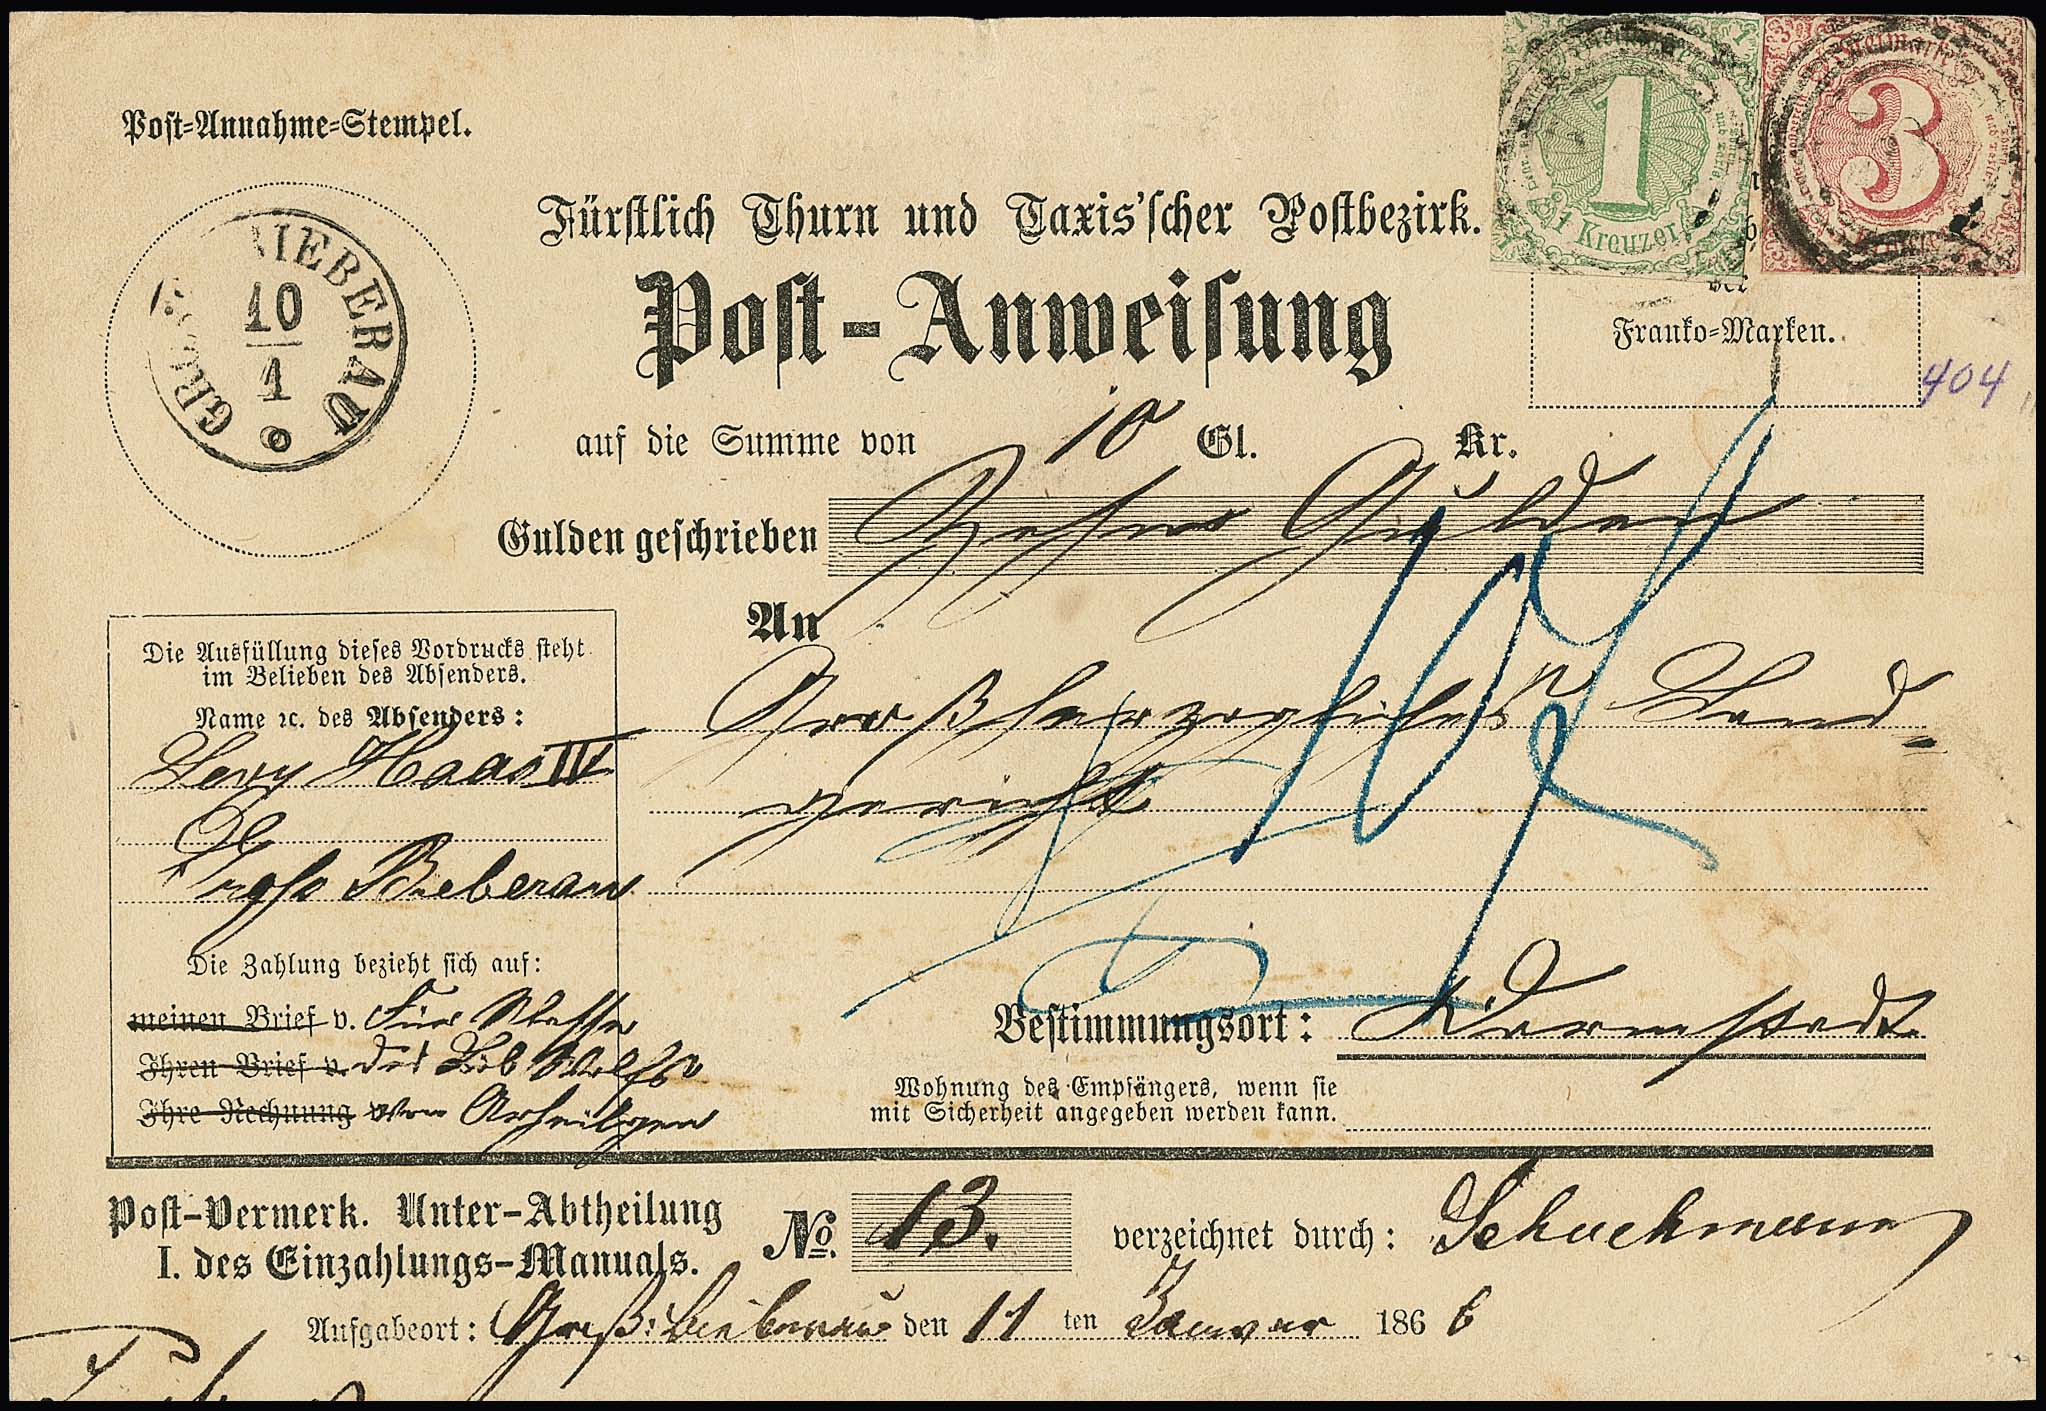 Post-Annahme-Stempel.
GROSS BIEBERAU
10
1
1
1 Kreuzer.
Freimarke
3
404
Fürstlich Thurn und Taxis'scher Postbezirk.
Post-Anweisung
der
Franko-Marken.
auf die Summe von 10 Gl. Kr.
Gulden geschrieben Zehn Gulden
An
Großherzogliches Land-
gericht
Die Ausfüllung dieses Vordrucks steht
im Belieben des Absenders.
Name ꝛc. des Absenders:
Levy Haas IV
Groß Bieberau
Die Zahlung bezieht sich auf:
meinen Brief v. Für Masse
Ihren Brief v. des Wolf
Ihre Rechnung von Arheilgen
Bestimmungsort: Darmstadt
Wohnung des Empfängers, wenn sie
mit Sicherheit angegeben werden kann.
Post-Vermerk. Unter-Abtheilung
I. des Einzahlungs-Manuals.
No. 13.
verzeichnet durch: Schuchmann
Aufgabeort: Groß-Bieberau den 11 ten Januar 1866